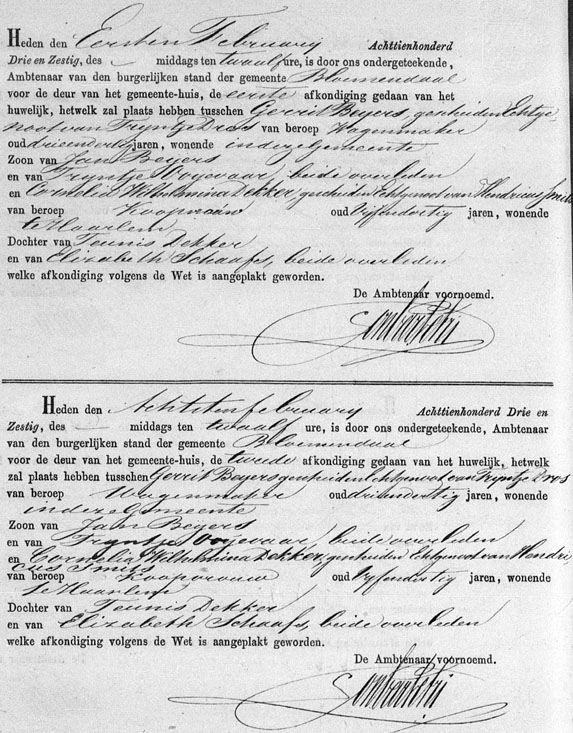 Heden den Eersten February Achttienhonderd
Drie en Zestig, des — middags ten twaalf ure, is door ons ondergeteekende,
Ambtenaar van den burgerlijken stand der gemeente Bloemendaal
voor de deur van het gemeente-huis, de eerste afkondiging gedaan van het
huwelijk, hetwelk zal plaats hebben tusschen Gerrit Beyers, gescheiden Echtge
noot van Tryntje Dros van beroep Wagenmaker
oud drieendertig jaren, wonende in deze gemeente
Zoon van Jan Beyers
en van Tryntje Ooyevaar, beide overleden
en Cornelia Wilhelmina Dekker, gescheiden Echtgenoot van Hendricus Smits
van beroep Koopvrouw oud vyfendertig jaren, wonende
te Haarlem
Dochter van Teunis Dekker
en van Elizabeth Schaafs, beide overleden
welke afkondiging volgens de Wet is aangeplakt geworden.
De Ambtenaar voornoemd.
Heden den Achtsten february Achttienhonderd Drie en
Zestig, des — middags ten twaalf ure, is door ons ondergeteekende, Ambtenaar
van den burgerlijken stand der gemeente Bloemendaal
voor de deur van het gemeente-huis, de tweede afkondiging gedaan van het huwelijk, hetwelk
zal plaats hebben tusschen Gerrit Beyers gescheiden Echtgenoot van Tryntje Dros
van beroep Wagenmaker oud drieendertig jaren, wonende
in deze gemeente
Zoon van Jan Beyers
en van Tryntje Ooyevaar, beide overleden
en Cornelia Wilhelmina Dekker, gescheiden Echtgenoot van Hendri
cus Smits
van beroep Koopvrouw oud vyfendertig jaren, wonende
te Haarlem
Dochter van Teunis Dekker
en van Elizabeth Schaafs, beide overleden
welke afkondiging volgens de Wet is aangeplakt geworden.
De Ambtenaar voornoemd.